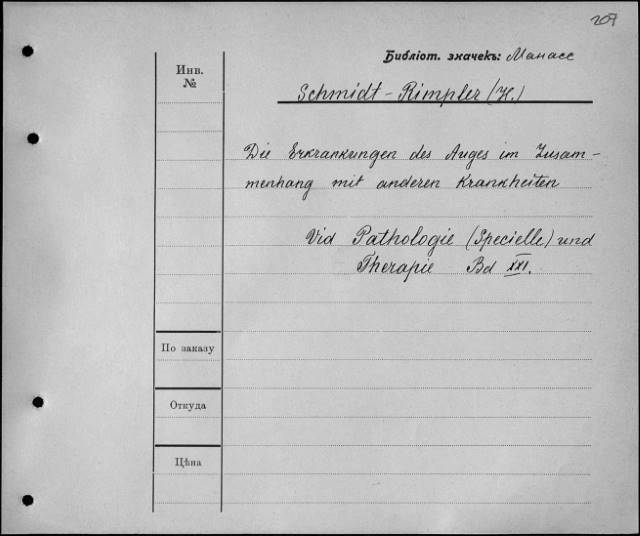 209
Библіот. значекъ: Манасс
Инв.
№
Schmidt-Rimpler (H.)
Die Erkrankungen des Auges im Zusam-
menhang mit anderen Krankheiten
Vid Pathologie (Specielle) und
Therapie Bd XXI.
По заказу
Откуда
Цѣна